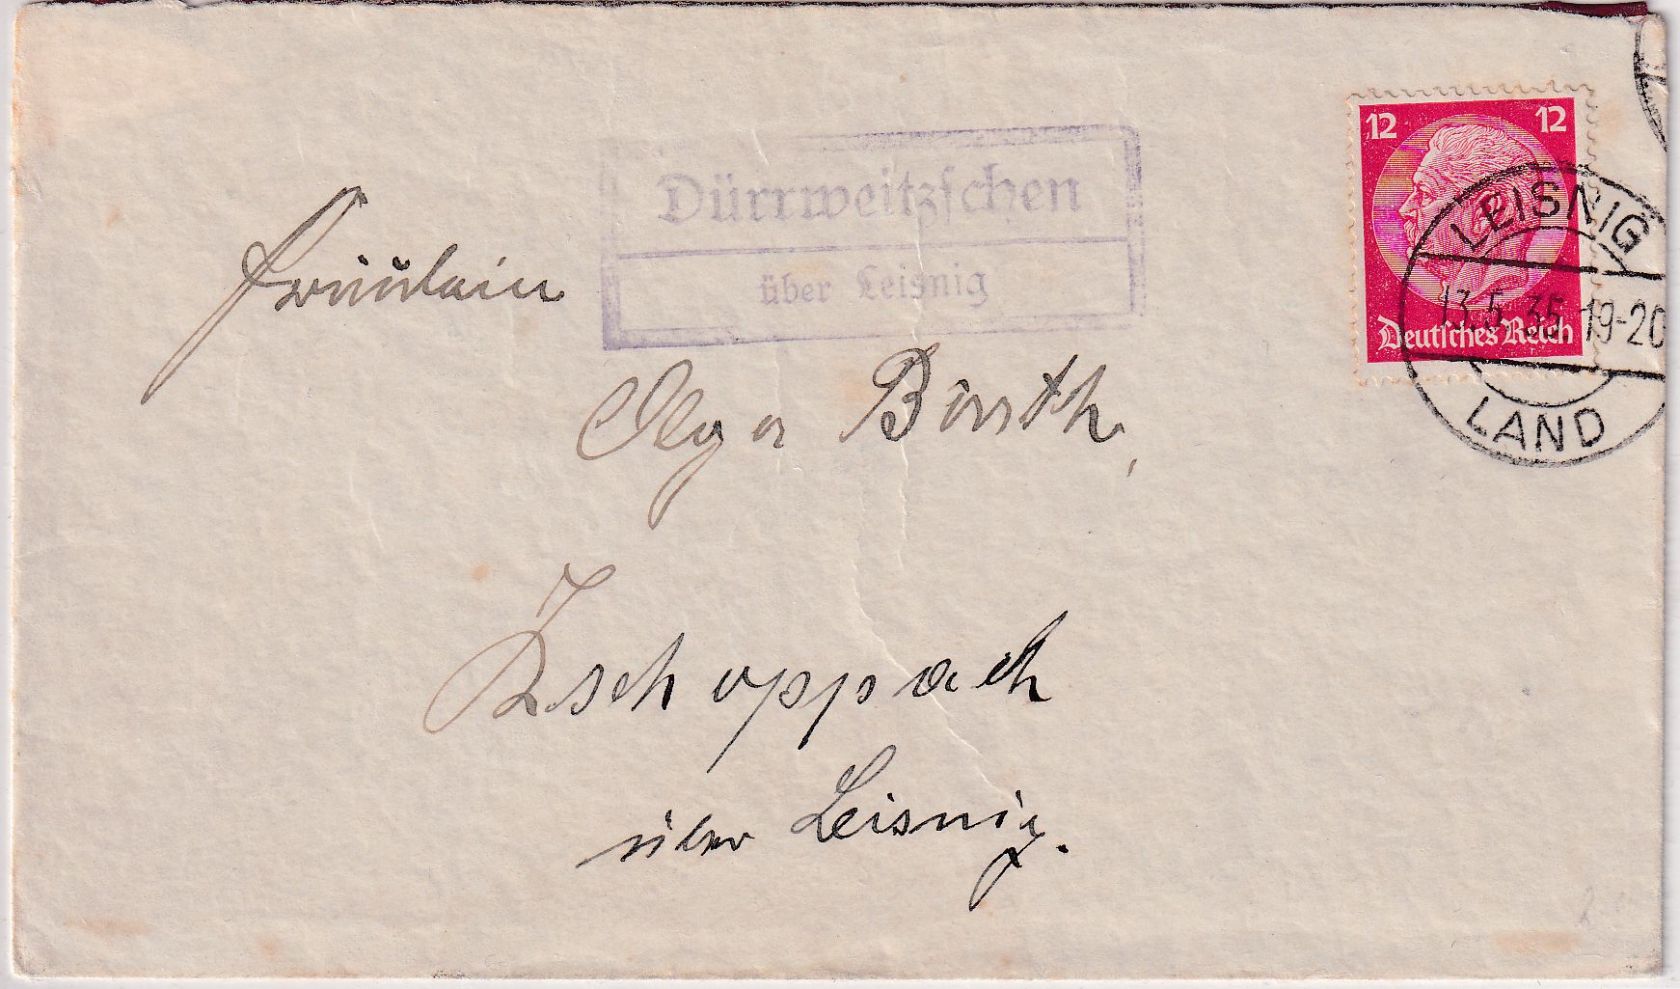 12 12
Deutsches Reich
LEISNIG
13.5.35 19-20
LAND
Dürrweitzschen
über Leisnig
Fräulein
Olga Barth,
Zschoppach
über Leisnig.